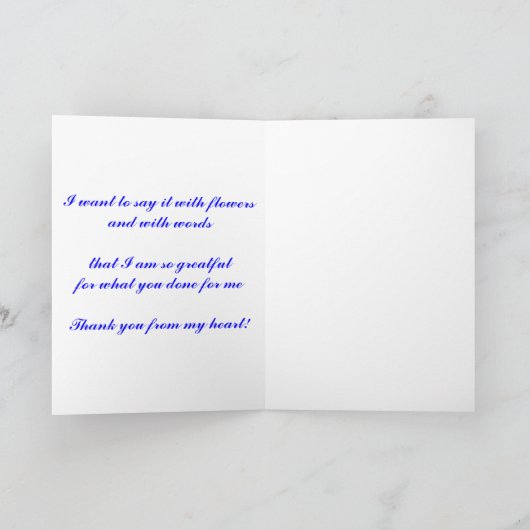 I want to say it with flowers
and with words
that I am so greatful
for what you done for me
Thank you from my heart!